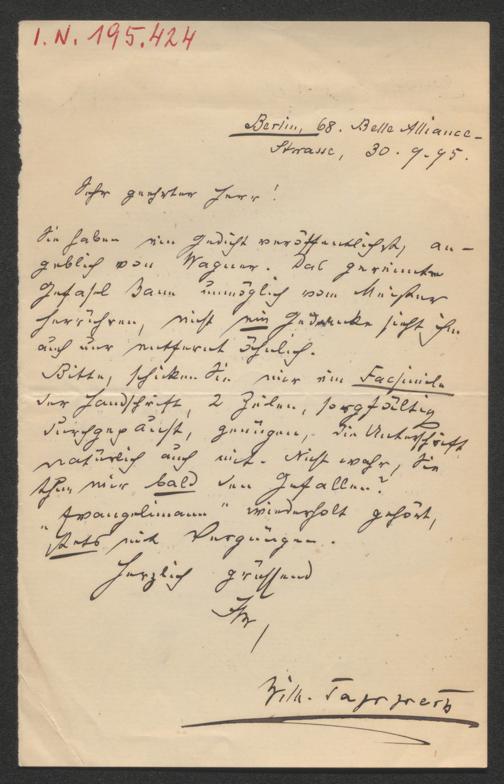 I. N. 195.424
Berlin, 68. Belle Alliance-
Strasse, 30. 9. 95.
Sehr geehrter Herr!
Sie haben ein Gedicht veröffentlicht, an-
geblich von Wagner. Das gereimte
Gefasel kann unmöglich vom Meister
herrühren, nicht ein Gedanke sieht ihm
auch nur entfernt ähnlich.
Bitte, schicken Sie mir ein Facsimile
der Handschrift, 2 Zeilen, sorgfältig
durchgepaust, genügen, die Unterschrift
natürlich auch mit. Nicht wahr, Sie
thun mir bald den Gefallen?
"Evangelimann" wiederholt gehört,
stets mit Vergnügen.
Herzlich grüssend
Ihr
Wilh. Tappert